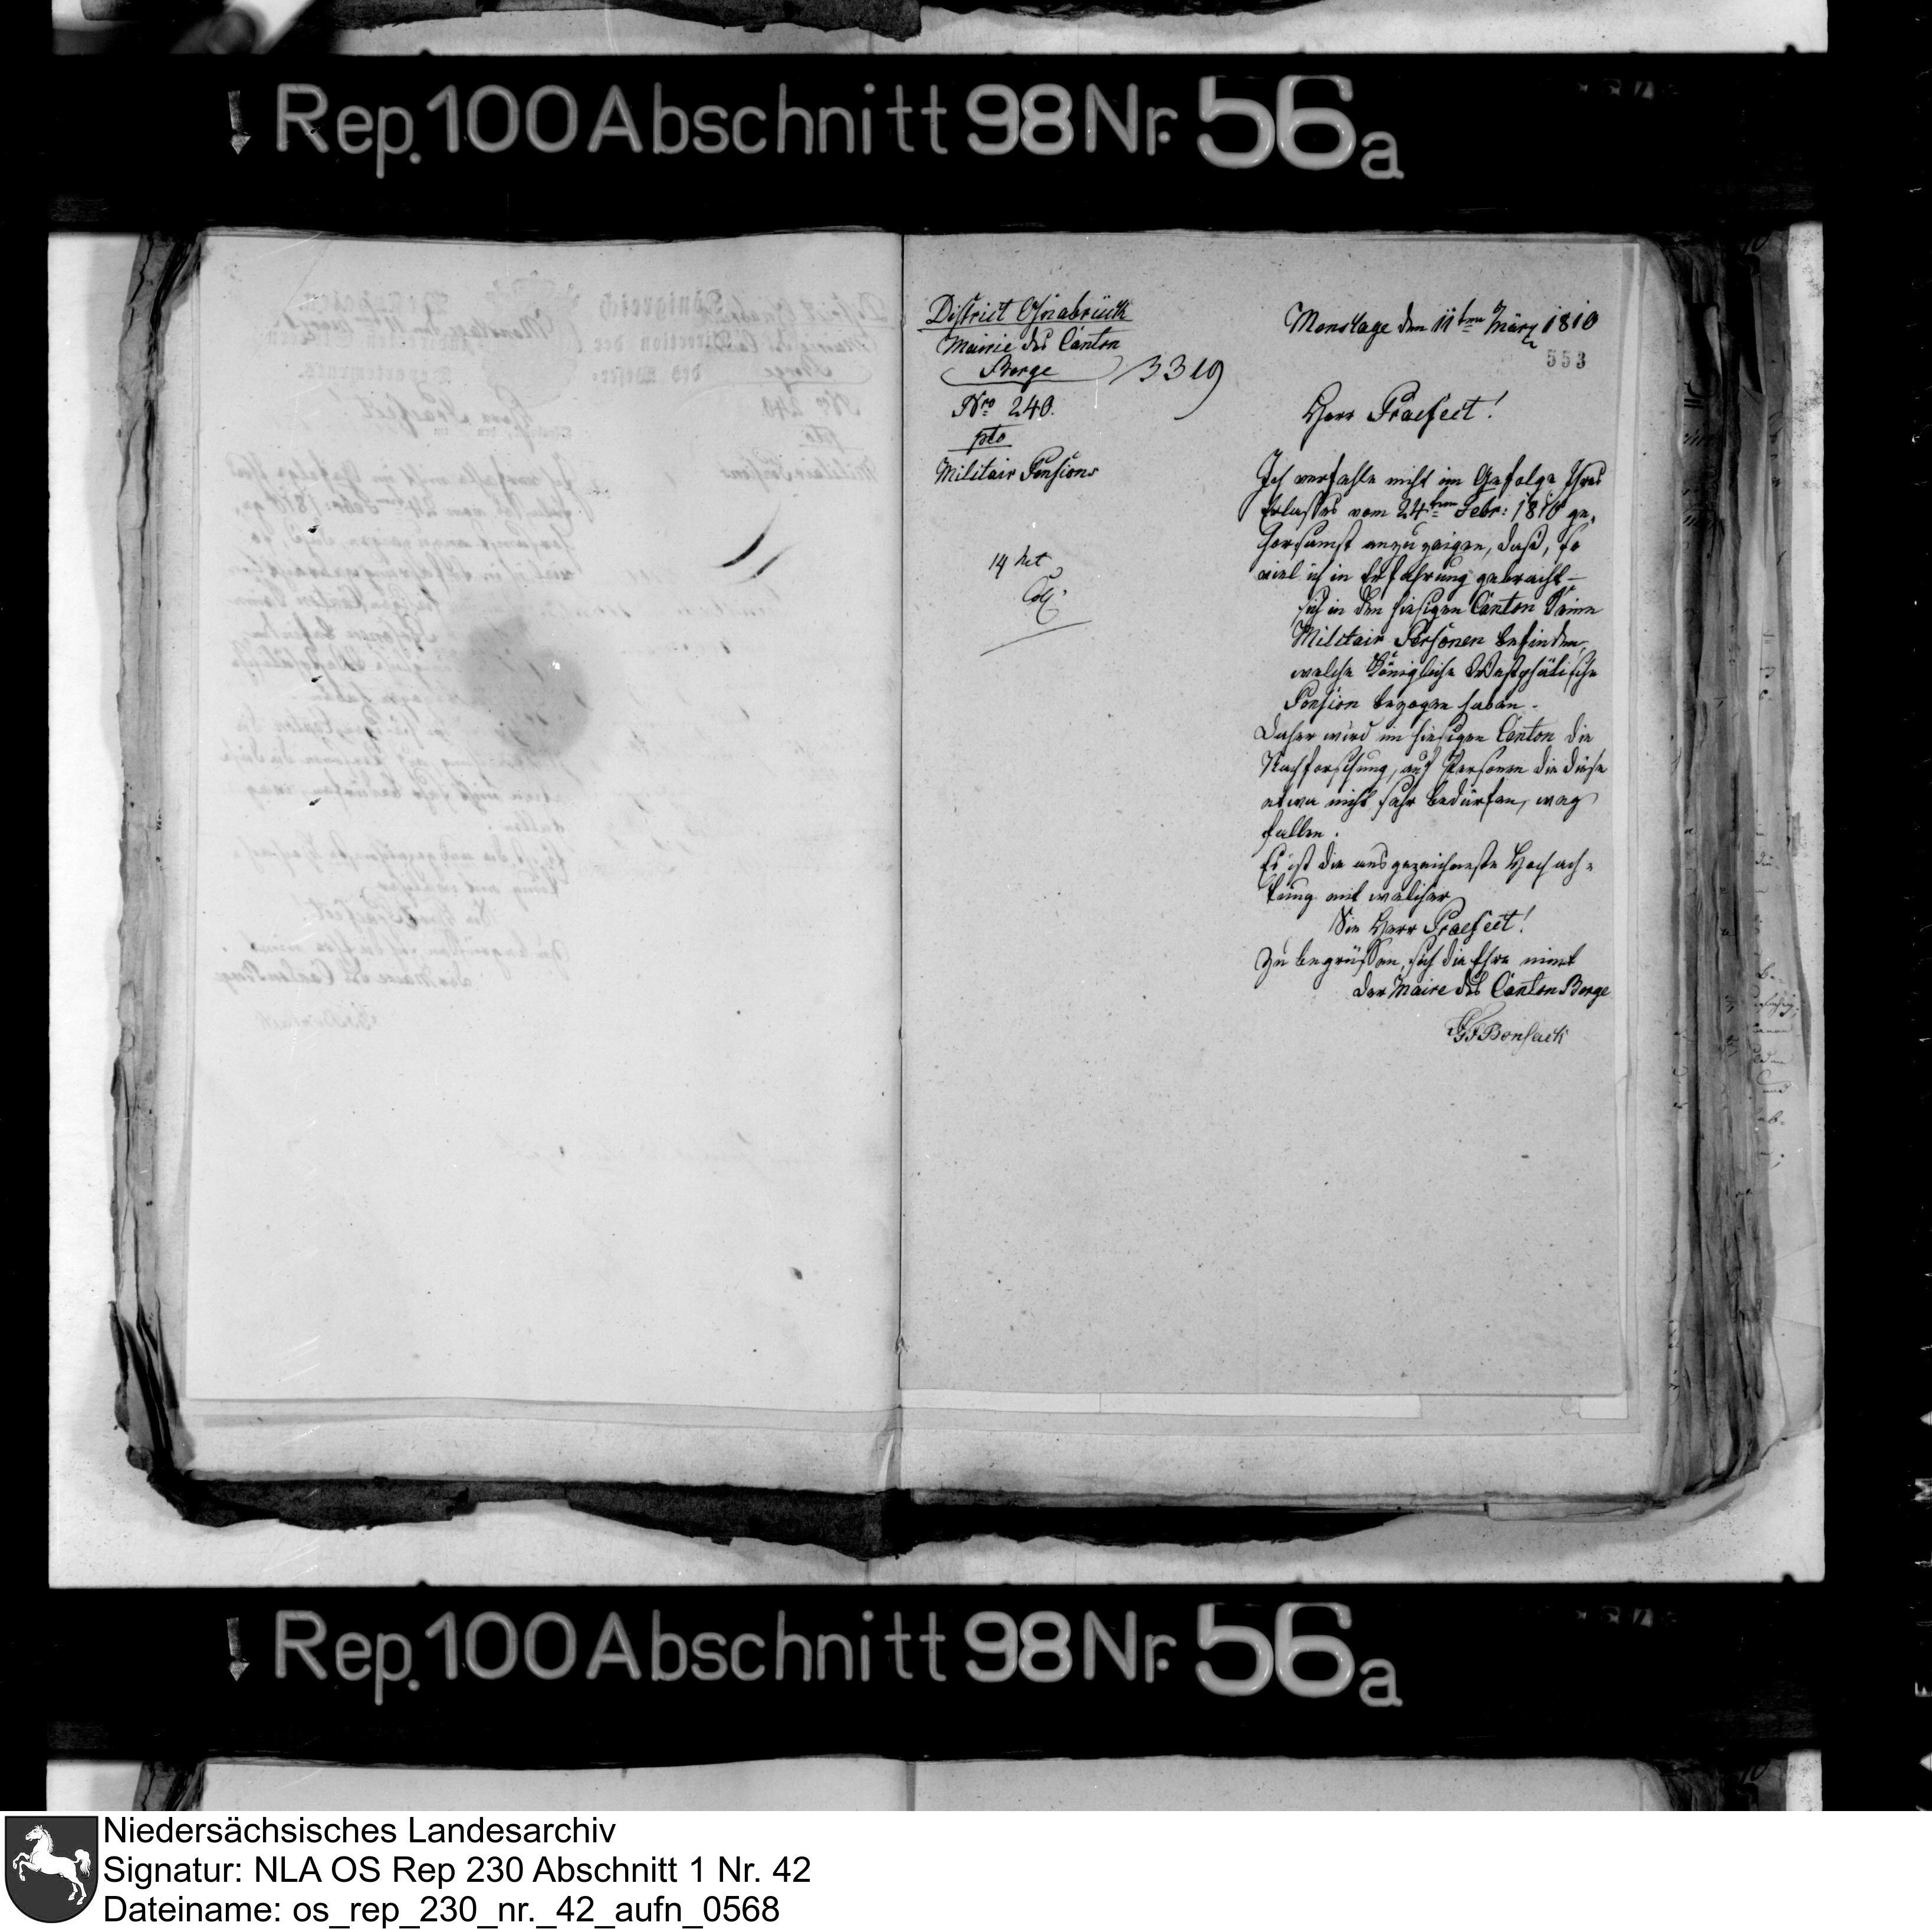 Rep. 100 Abschnitt 98 Nr. 56a
District Osnabrück
Mairie des Canton
Borge
3319
Nro 240.
pto
Militair Pensions
14
Monslage den 11ten März 1810
553
Herr Praefect!
Ich verfehle nicht im Gefolge Ihres
Erlasses vom 24ten Febr: 1810 ge-
horsamst anzuzeigen, daß, so
viel ich in Erfahrung gebracht –
sich in den hiesigen Canton keine
Militair Personen befinden,
welche Königliche Westphälische
Pension bezogen haben.
Daher wird im hiesigen Canton die
Nachforschung, auf Personen die diese
etwa nicht sehr bedürfen, weg
fallen.
Es ist die ausgezeichneste Hochach-
tung mit welcher
Sie Herr Praefect!
zu begrüssen, sich die Ehre nimt
der Maire des Canton Borge
Bonsack
Rep. 100 Abschnitt 98 Nr. 56a
Niedersächsisches Landesarchiv
Signatur: NLA OS Rep 230 Abschnitt 1 Nr. 42
Dateiname: os_rep_230_nr._42_aufn_0568